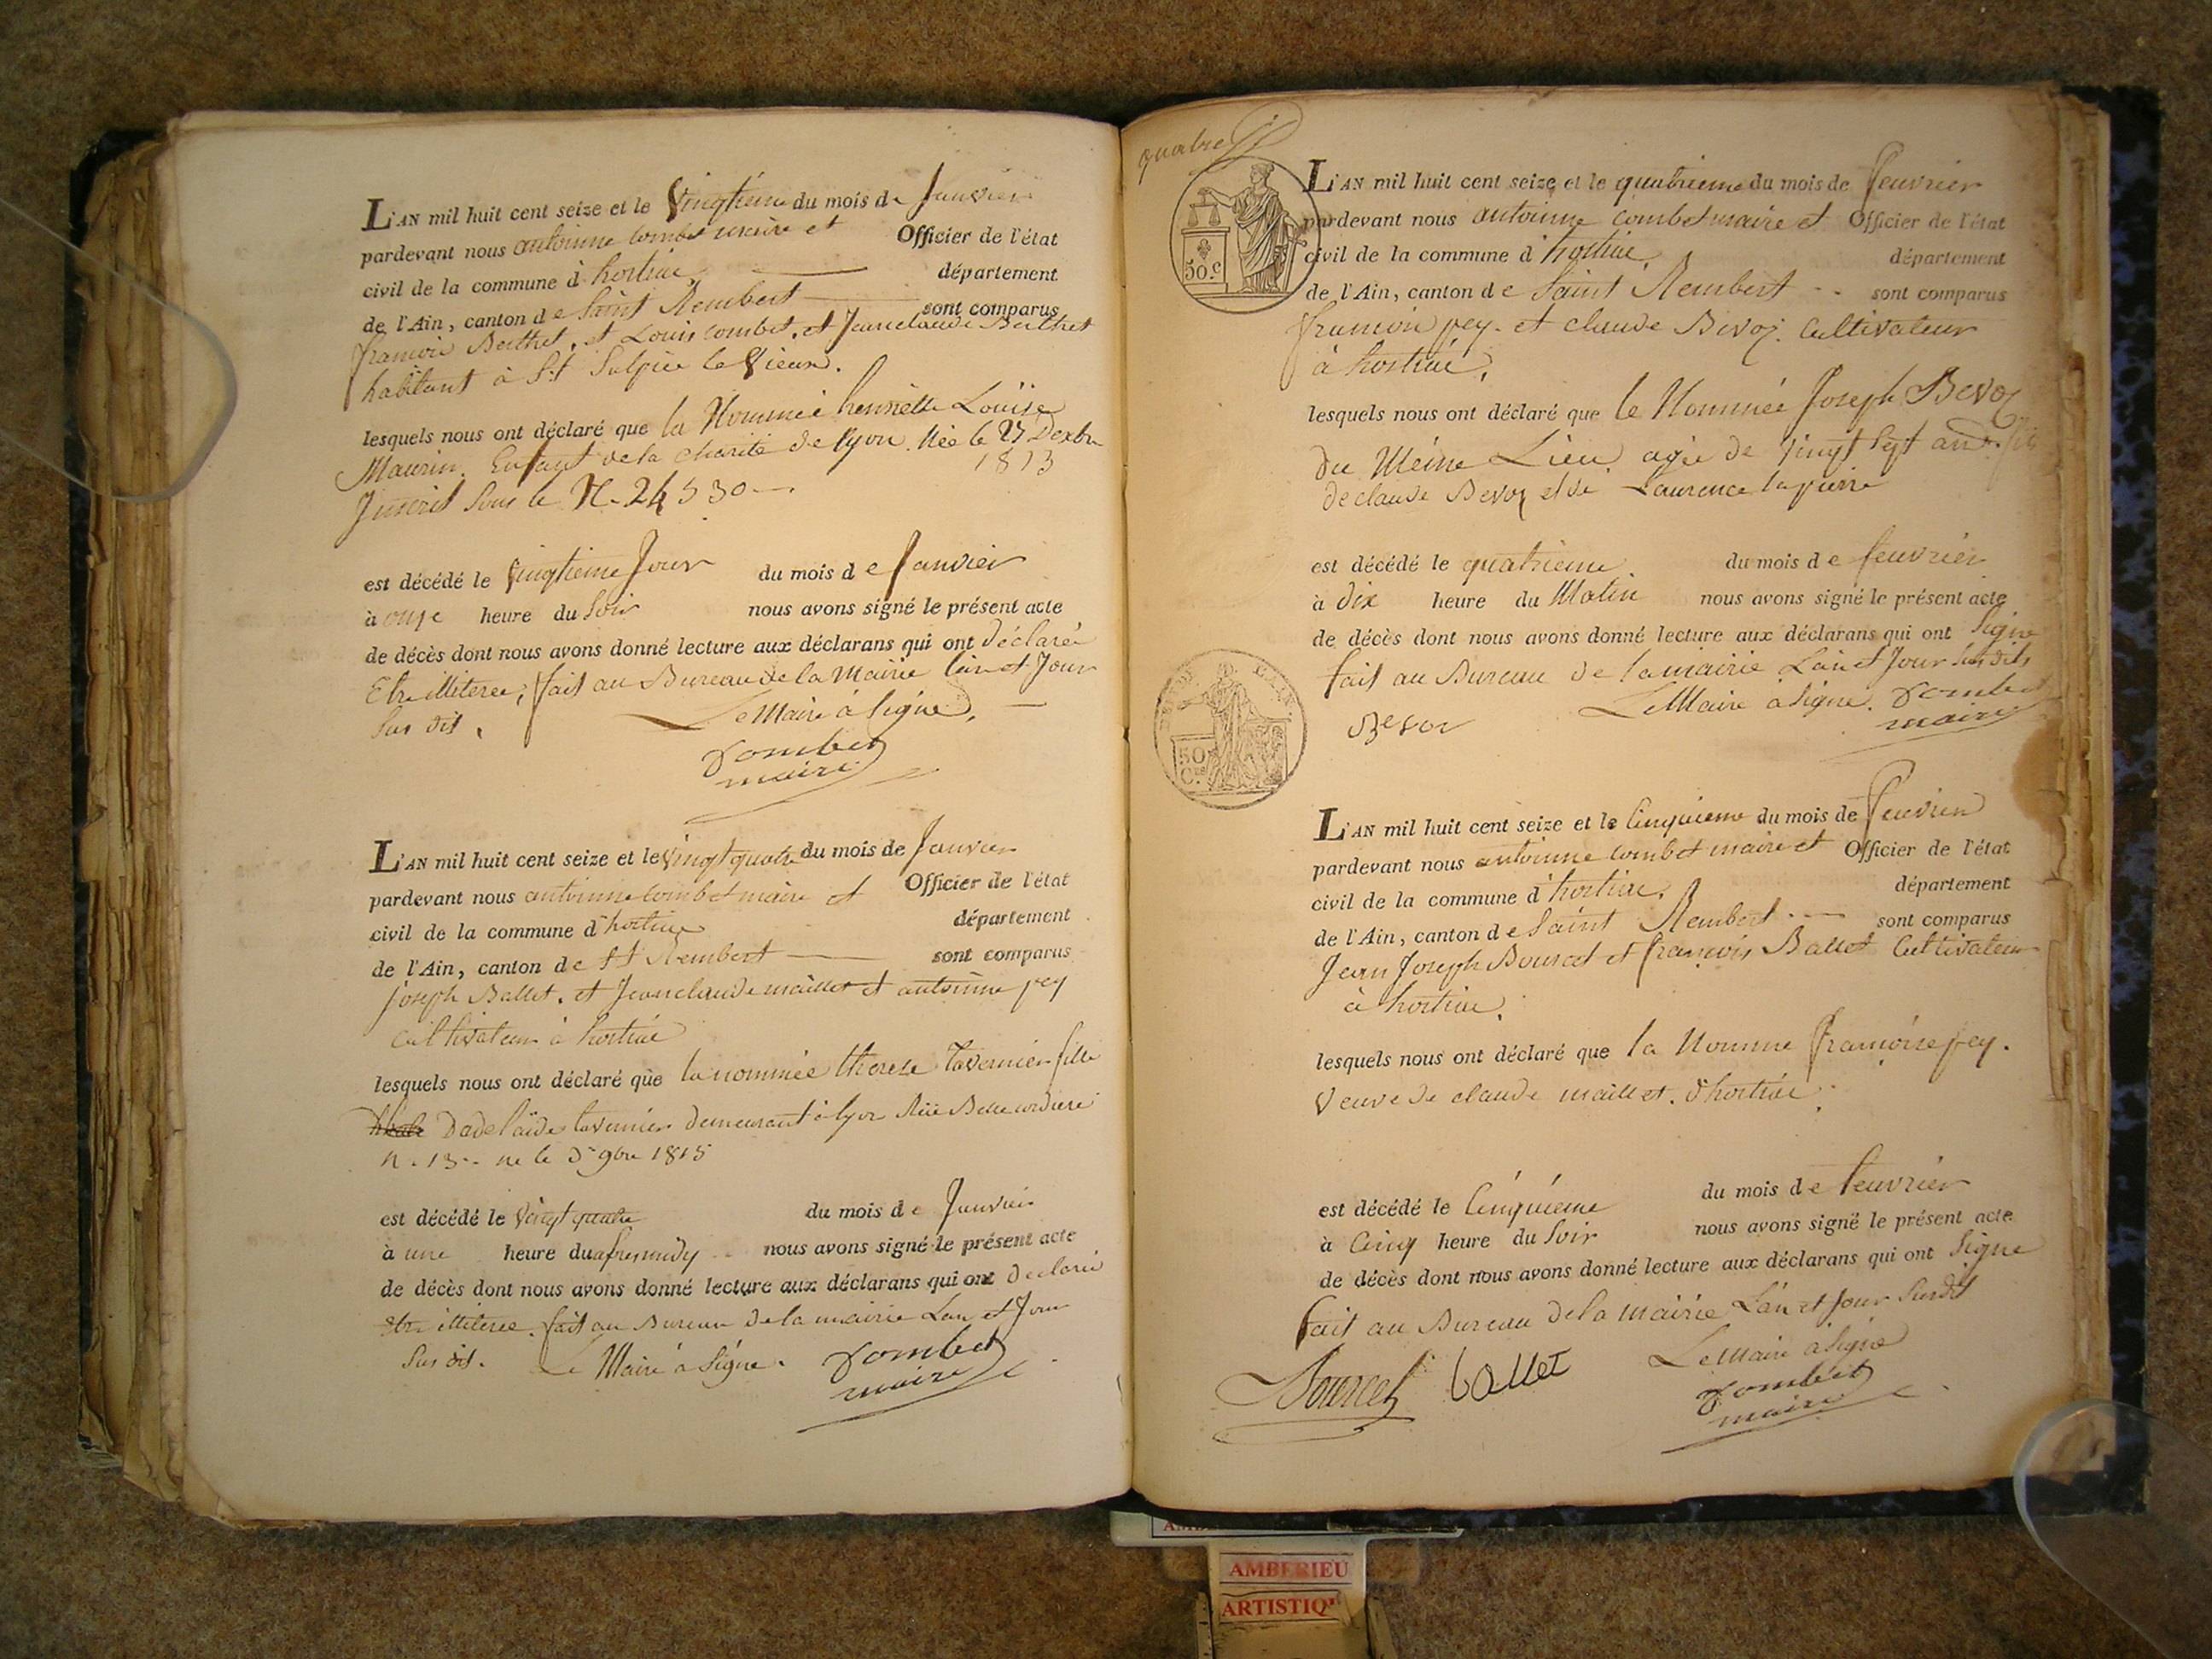 L'AN mil huit cent seize et le vingtieme du mois de Janvier
pardevant nous antoinne combet maire et Officier de l'état
civil de la commune d'hostiac département
de l'Ain, canton de Saint Rembert sont comparus
francois Berthet, et Louis combet, et Jeanclaude Berthet
habitant à St Sulpice le Vieux.
lesquels nous ont déclaré que la Nommée henriette Louise
Maurin. Enfant de la charité de lyon. Née le 27 Dexbre
1813
Inscrit sous le N. 24530
est décédé le vingtieme Jour du mois de Janvier
à onze heure du Soir nous avons signé le présent acte
de décès dont nous avons donné lecture aux déclarans qui ont déclaré
Etre illiteree, fait au Bureau de la Mairie Lan et Jour
Sus dit. Le Maire à Signé.
Combet
maire
L'AN mil huit cent seize et le vingt quatre du mois de Janvier
pardevant nous antoinne combet maire et Officier de l'état
civil de la commune d'hostiac département
de l'Ain, canton de St Rembert sont comparus
joseph Ballet. et Jeanclaude maillet et antoinne pey
cultivateur à hostiac
lesquels nous ont déclaré que la nommée therese tavernier fille
Dadelaïde tavernier demeurant à lyon Rüe Belle cordiere
n. 13 ne le 5 9bre 1815
est décédé le vingt quatre du mois de Janvier
à une heure du apres midy nous avons signé le présent acte
de décès dont nous avons donné lecture aux déclarans qui ont declaré
etre illiteree. fait au Bureau de la mairie Lan et Jour
Sus dit. Le Maire à Signé. Combet
maire
quatre
50.c
L'AN mil huit cent seize et le quatrieme du mois de feuvrier
pardevant nous antoinne combet maire et Officier de l'état
civil de la commune d'hostiac département
de l'Ain, canton de Saint Rembert sont comparus
francois pey. et claude Bevoz. Cultivateur
à hostiac.
lesquels nous ont déclaré que le Nommée Joseph Bevoz
du Méme Lieu agée de vingt Sept ans. fils
de claude Bevoz et de Laurence lapierre
est décédé le quatrieme du mois de feuvrier
à dix heure du Matin nous avons signé le présent acte
de décès dont nous avons donné lecture aux déclarans qui ont Signe
fait au Bureau de la mairie Lan et Jour Sus dits
Le Maire a Signe. Combet
maire
Bevoz
50
L'AN mil huit cent seize et le Cinquieme du mois de feuvrier
pardevant nous antoinne combet maire et Officier de l'état
civil de la commune d'hostiac. département
de l'Ain, canton de Saint Rembert sont comparus
Jean Joseph Bourcet et francois Ballet Cultivateur
à hostiac.
lesquels nous ont déclaré que la Nomme francoise pey.
Veuve de claude maillet. d'hostiac
est décédé le Cinquieme du mois de feuvrier
à Cinq heure du Soir nous avons signé le présent acte
de décès dont nous avons donné lecture aux déclarans qui ont Signe
fait au Bureau de la mairie Lan et Jour Susdit
Le Maire à Signe
Bourcet ballet Combet
maire
AMBERIEU
ARTISTIQ